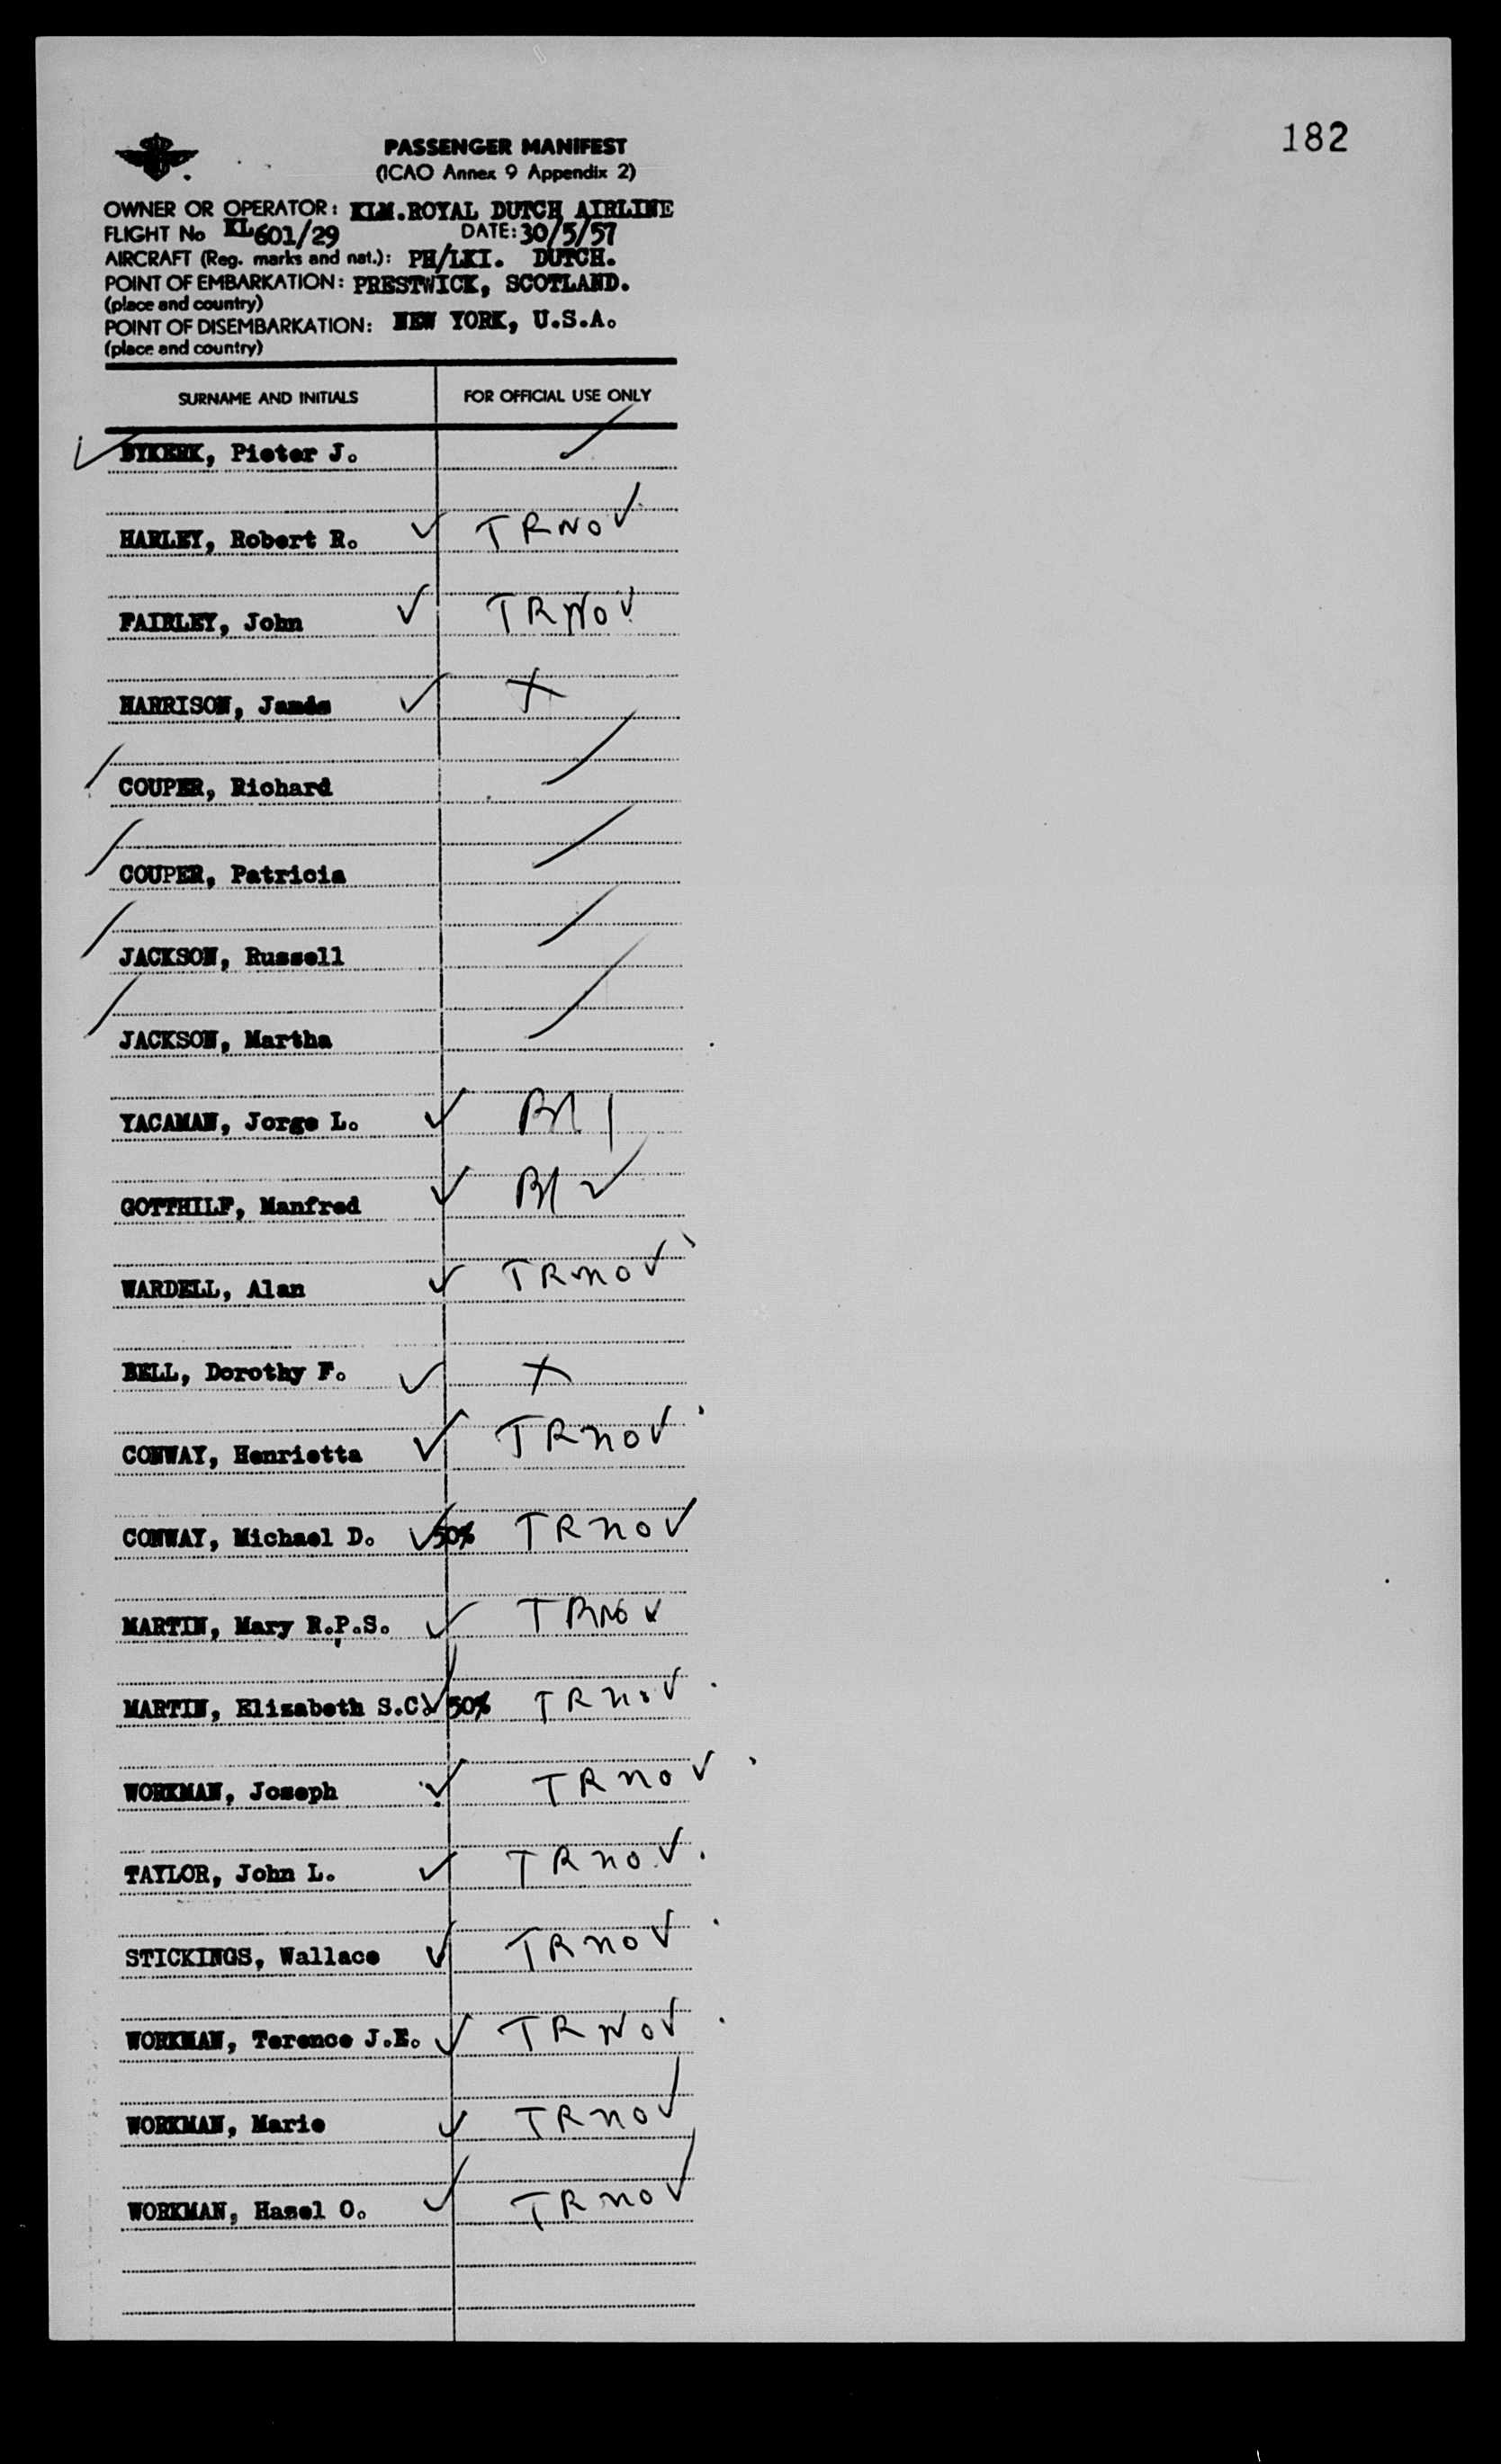 182
PASSENGER MANIFEST
(ICAO Annex 9 Appendix 2)
OWNER OR OPERATOR: KLM.ROYAL DUTCH AIRLINE
FLIGHT No KL601/29 DATE: 30/5/57
AIRCRAFT (Reg. marks and nat.): PH/LKI. DUTCH.
POINT OF EMBARKATION: PRESTWICK, SCOTLAND.
(place and country)
POINT OF DISEMBARKATION: NEW YORK, U.S.A.
(place and country)
SURNAME AND INITIALS FOR OFFICIAL USE ONLY
BYKERK, Pieter J.
HARLEY, Robert R. ✓ TRNOV
FAIRLEY, John ✓ TRNOV
HARRISON, James ✓ X
COUPER, Richard
COUPER, Patricia
JACKSON, Russell
JACKSON, Martha
YACAMAN, Jorge L. ✓
GOTTHILF, Manfred ✓
WARDELL, Alan ✓ TRNOV
BELL, Dorothy F. ✓ X
CONWAY, Henrietta ✓ TRNOV
CONWAY, Michael D. ✓ 50% TRNOV
MARTIN, Mary R.P.S. ✓ TRNOV
MARTIN, Elizabeth S.C. ✓ 50% TRNOV
WORKMAN, Joseph ✓ TRNOV
TAYLOR, John L. ✓ TRNOV
STICKINGS, Wallace ✓ TRNOV
WORKMAN, Terence J.E. ✓ TRNOV
WORKMAN, Marie ✓ TRNOV
WORKMAN, Hazel O. ✓ TRNOV